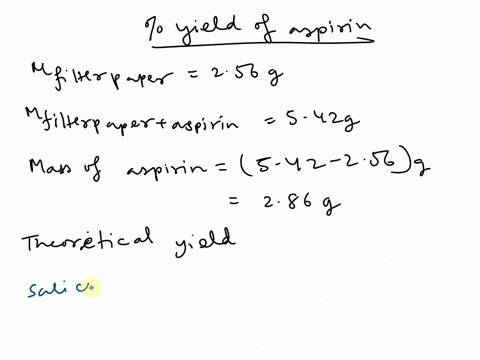 % yield of aspirin
Mfilter paper = 2.56 g
Mfilter paper + aspirin = 5.42g
Mass of aspirin = (5.42-2.56)g
= 2.86 g
Theoretical yield
Salic